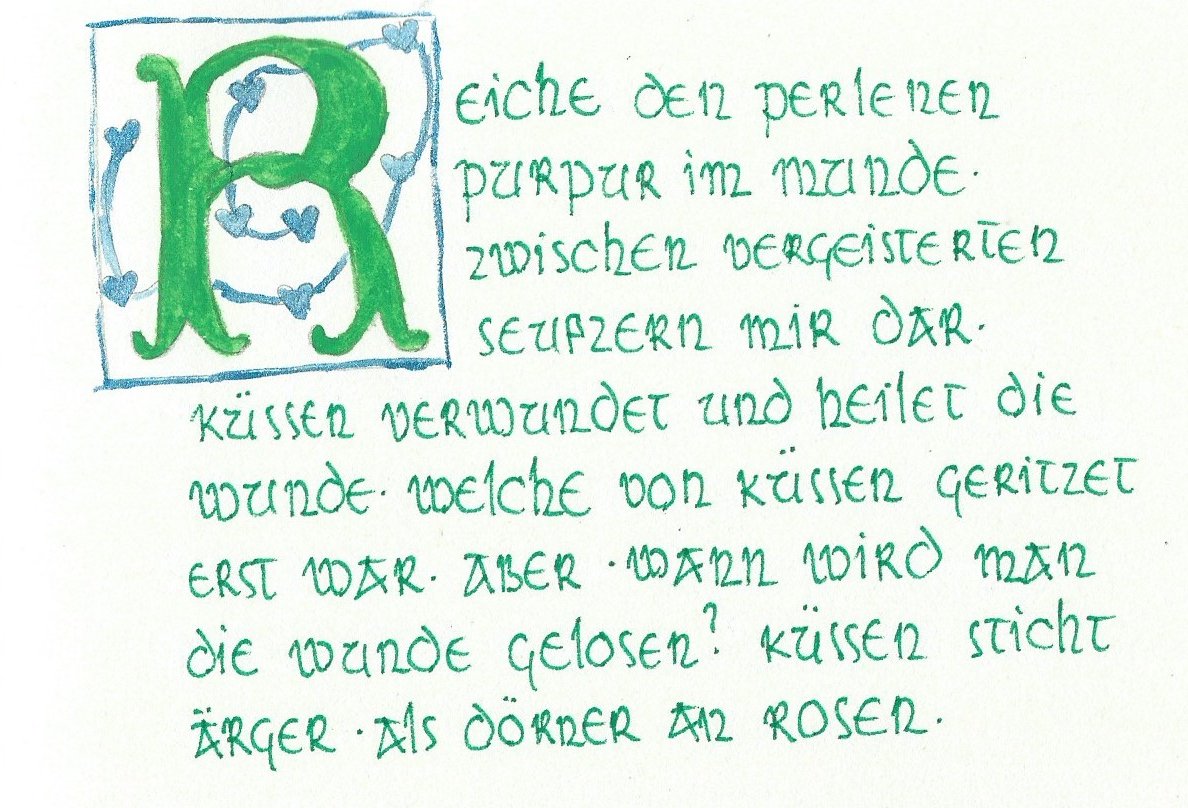 Reiche den perlenen
purpur im munde·
zwischen vergeisterten
seufzern mir dar·
küssen verwundet und heilet die
wunde· welche von küssen geritzet
erst war· aber · wann wird man
die wunde gelosen? küssen sticht
ärger · als dörner an rosen·